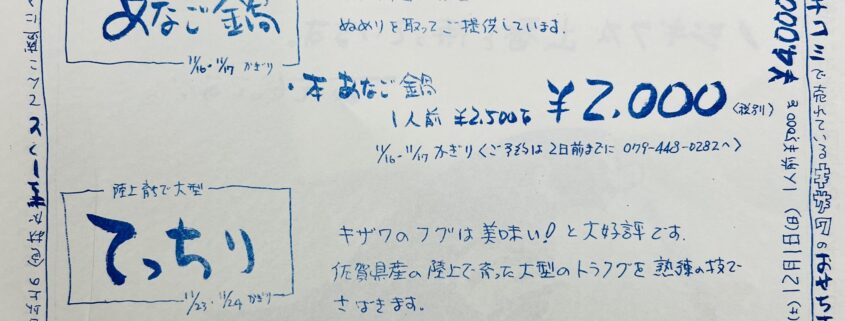 あなご鍋
11/16・11/17 かぎり
ぬめりを取ってご提供しています.
・本 あなご鍋
1人前 ¥2,500を ¥2,000 (税別)
11/16-11/17 かぎり くご予約は 2日前までに 079-448-0282へ〉
陸上育ちで大型
てっちり
11/23・11/24 かぎり
キザワのフグは美味い!と大好評です.
佐賀県産の陸上で育った大型のトラフグを熟練の技で
さばきます。
12月1日(日) 1人前 ¥5000を ¥4,000
で売れている